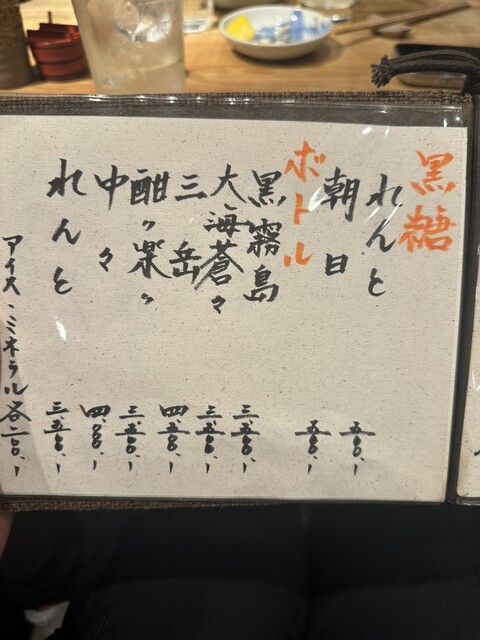 黒糖
れんと 五〇〇、ー
朝日 五〇〇、ー
ボトル
黒霧島 三、五〇〇、ー
大海蒼々 三、五〇〇、ー
三岳 四、五〇〇、ー
酣々楽々 三、五〇〇、ー
中々 四、〇〇〇、ー
れんと 三、五〇〇、ー
アイス・ミネラル各二〇〇、ー